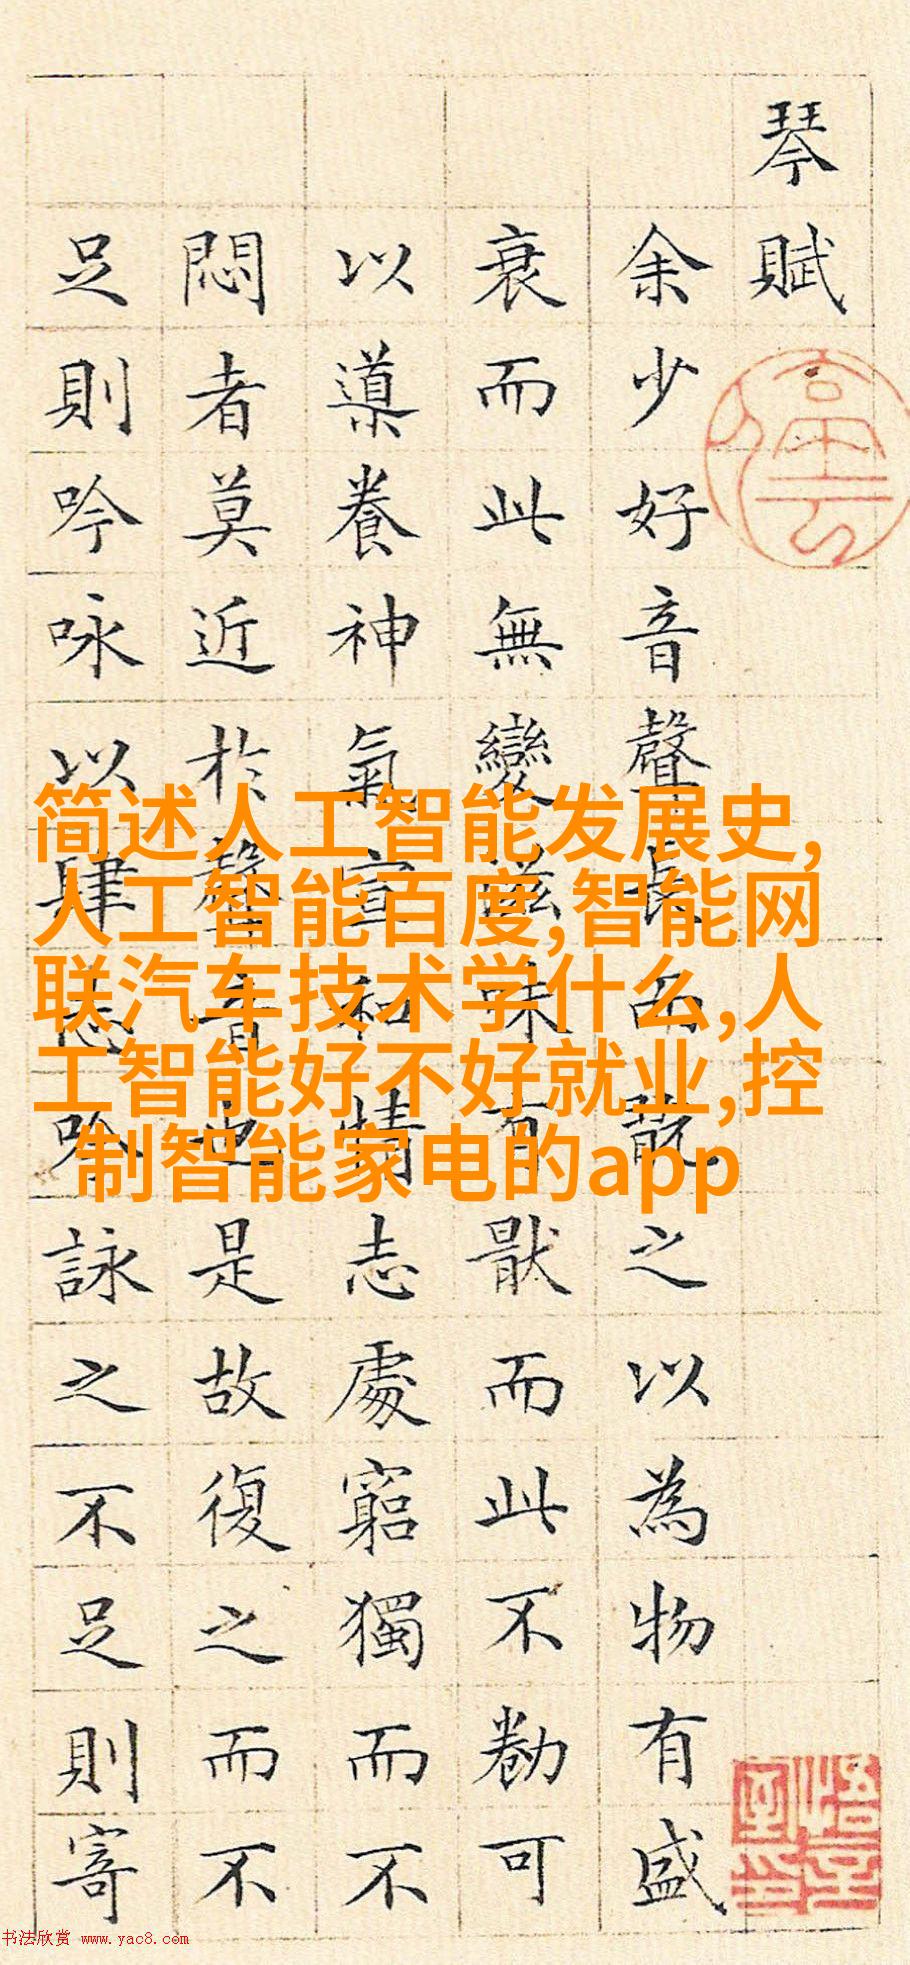 琴賦
余少好音聲長而翫之以為物有盛
衰而此無變滋味有猒而此不勌可
以導養神氣宣和情志處窮獨而不
悶者莫近於聲音也是故復之而不
足則吟咏以肆志吟詠之不足則寄
简述人工智能发展史,
人工智能百度,智能网
联汽车技术学什么,人
工智能好不好就业,控
制智能家电的app
书法欣赏 www.yac8.com